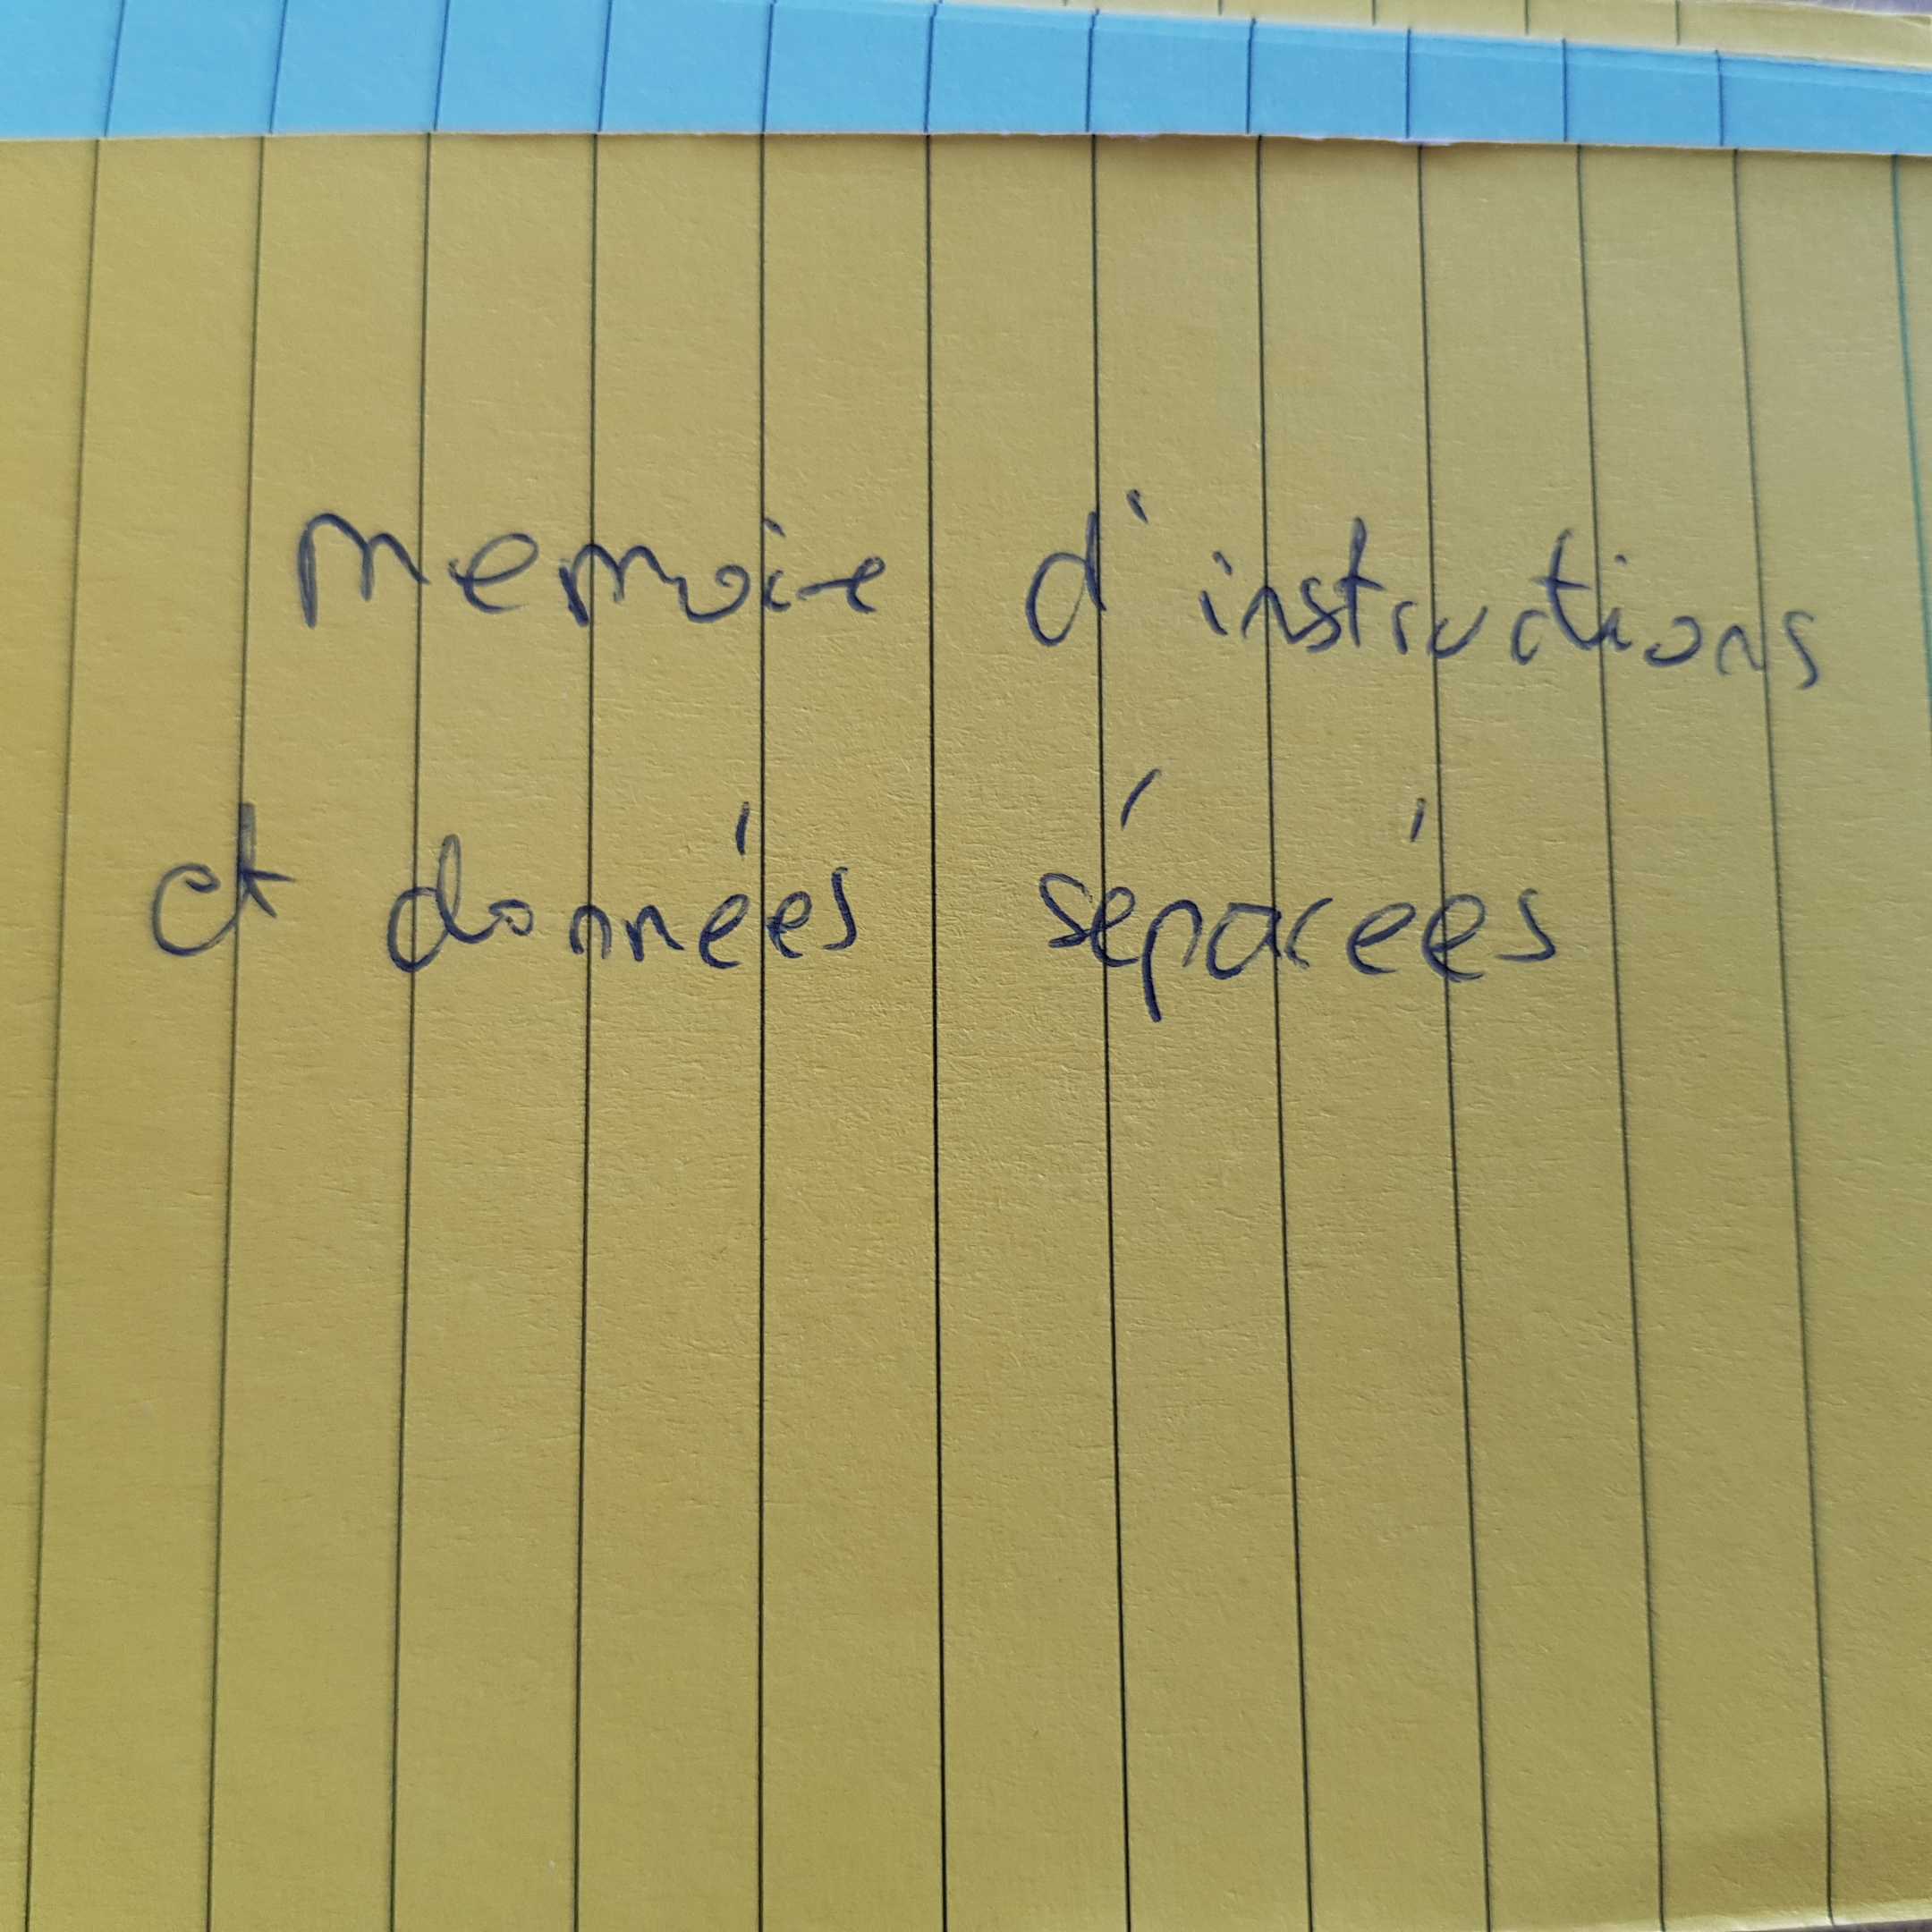 memoire d'instructions
et données séparées